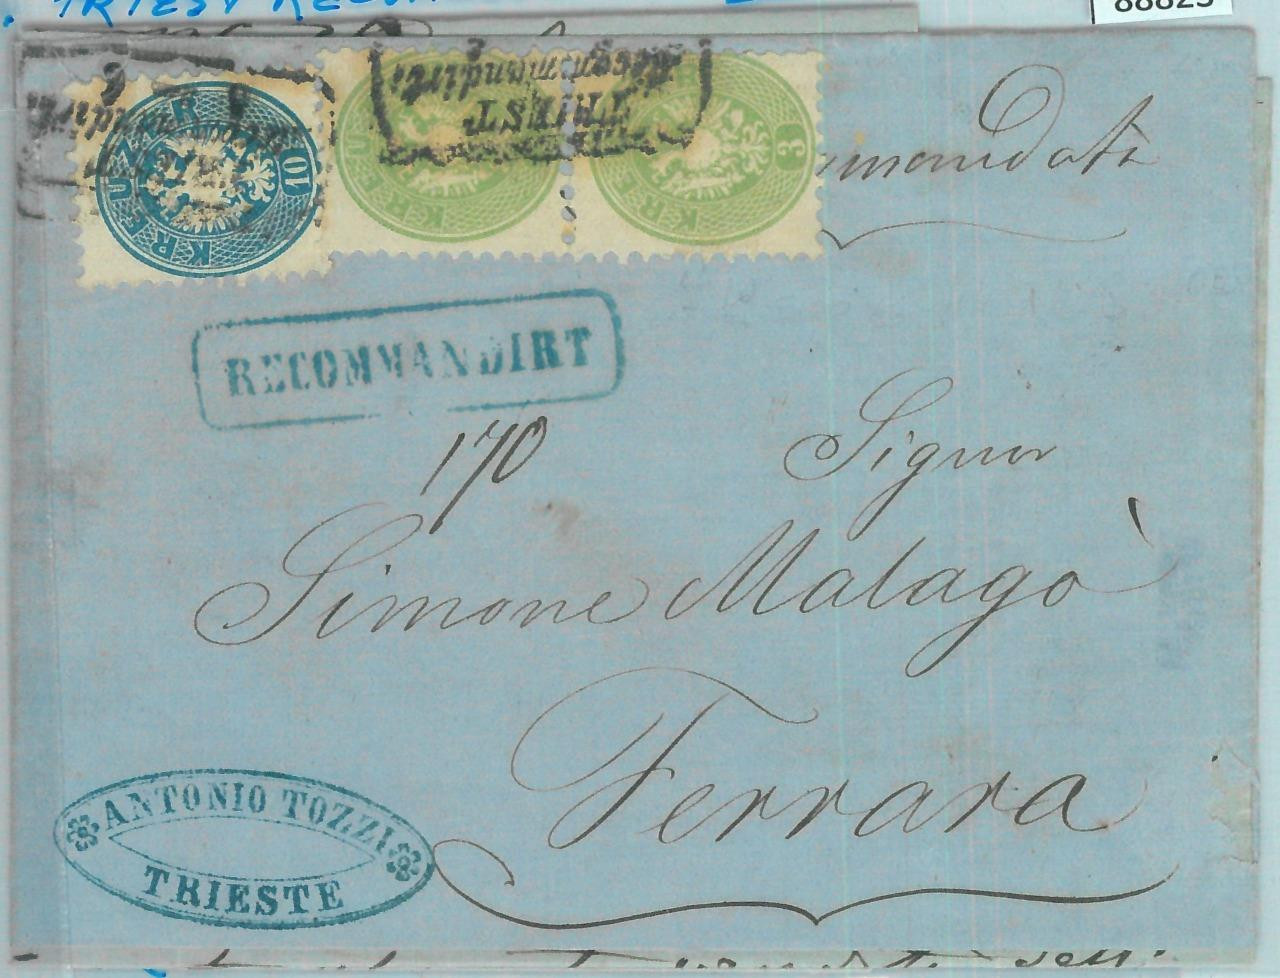 TRIEST RECOM
88823
10 KREUZER
KREU
3 KR
Recommandirt
TRIEST
mandati
RECOMMANDIRT
170
Signor
Simone Malagò
Ferrara
ANTONIO TOZZI
TRIESTE